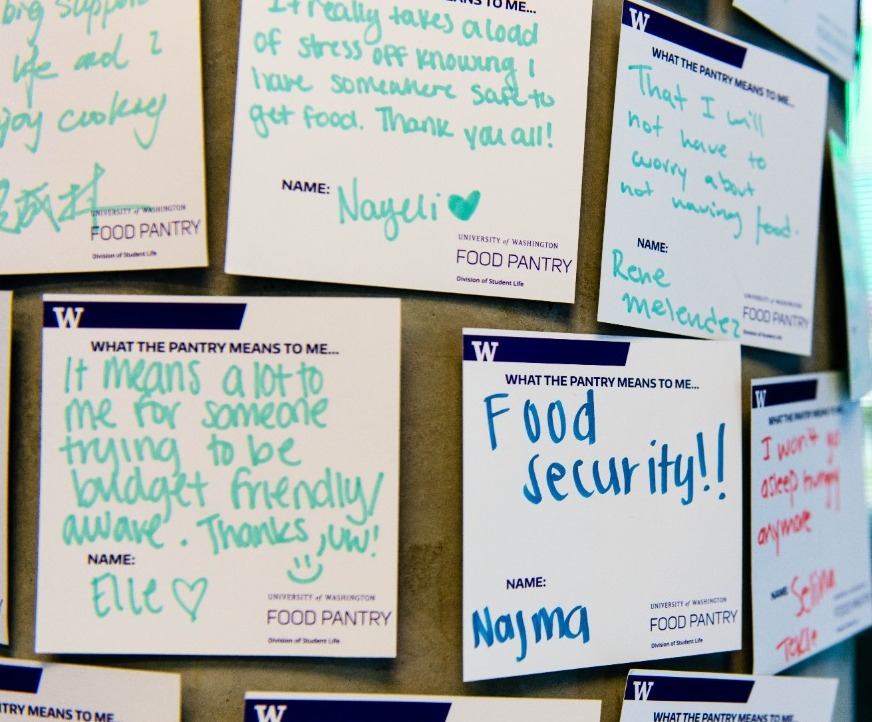 big support
life and I
enjoy cooking
UNIVERSITY of WASHINGTON
FOOD PANTRY
Division of Student Life
TO ME...
It really takes a load
of stress off knowing I
have somewhere safe to
get food. Thank you all!
NAME:
Nayeli
UNIVERSITY of WASHINGTON
FOOD PANTRY
Division of Student Life
W
WHAT THE PANTRY MEANS TO ME...
That I will
not have to
worry about
not having food.
NAME:
Rene
Melendez
UNIVERSITY of WASHINGTON
FOOD PANTRY
Division of Student Life
W
WHAT THE PANTRY MEANS TO ME...
It means a lot to
me for someone
trying to be
budget friendly/
aware. Thanks, UW!
NAME:
Elle
UNIVERSITY of WASHINGTON
FOOD PANTRY
Division of Student Life
W
WHAT THE PANTRY MEANS TO ME...
Food
security!!
NAME:
Najma
UNIVERSITY of WASHINGTON
FOOD PANTRY
Division of Student Life
W
WHAT THE PANTRY MEANS TO ME...
I won't go
asleep hungry
anymore
NAME:
FOOD PANTRY
TRY MEANS TO ME...
W
W
WHAT THE PANTRY MEANS TO ME...